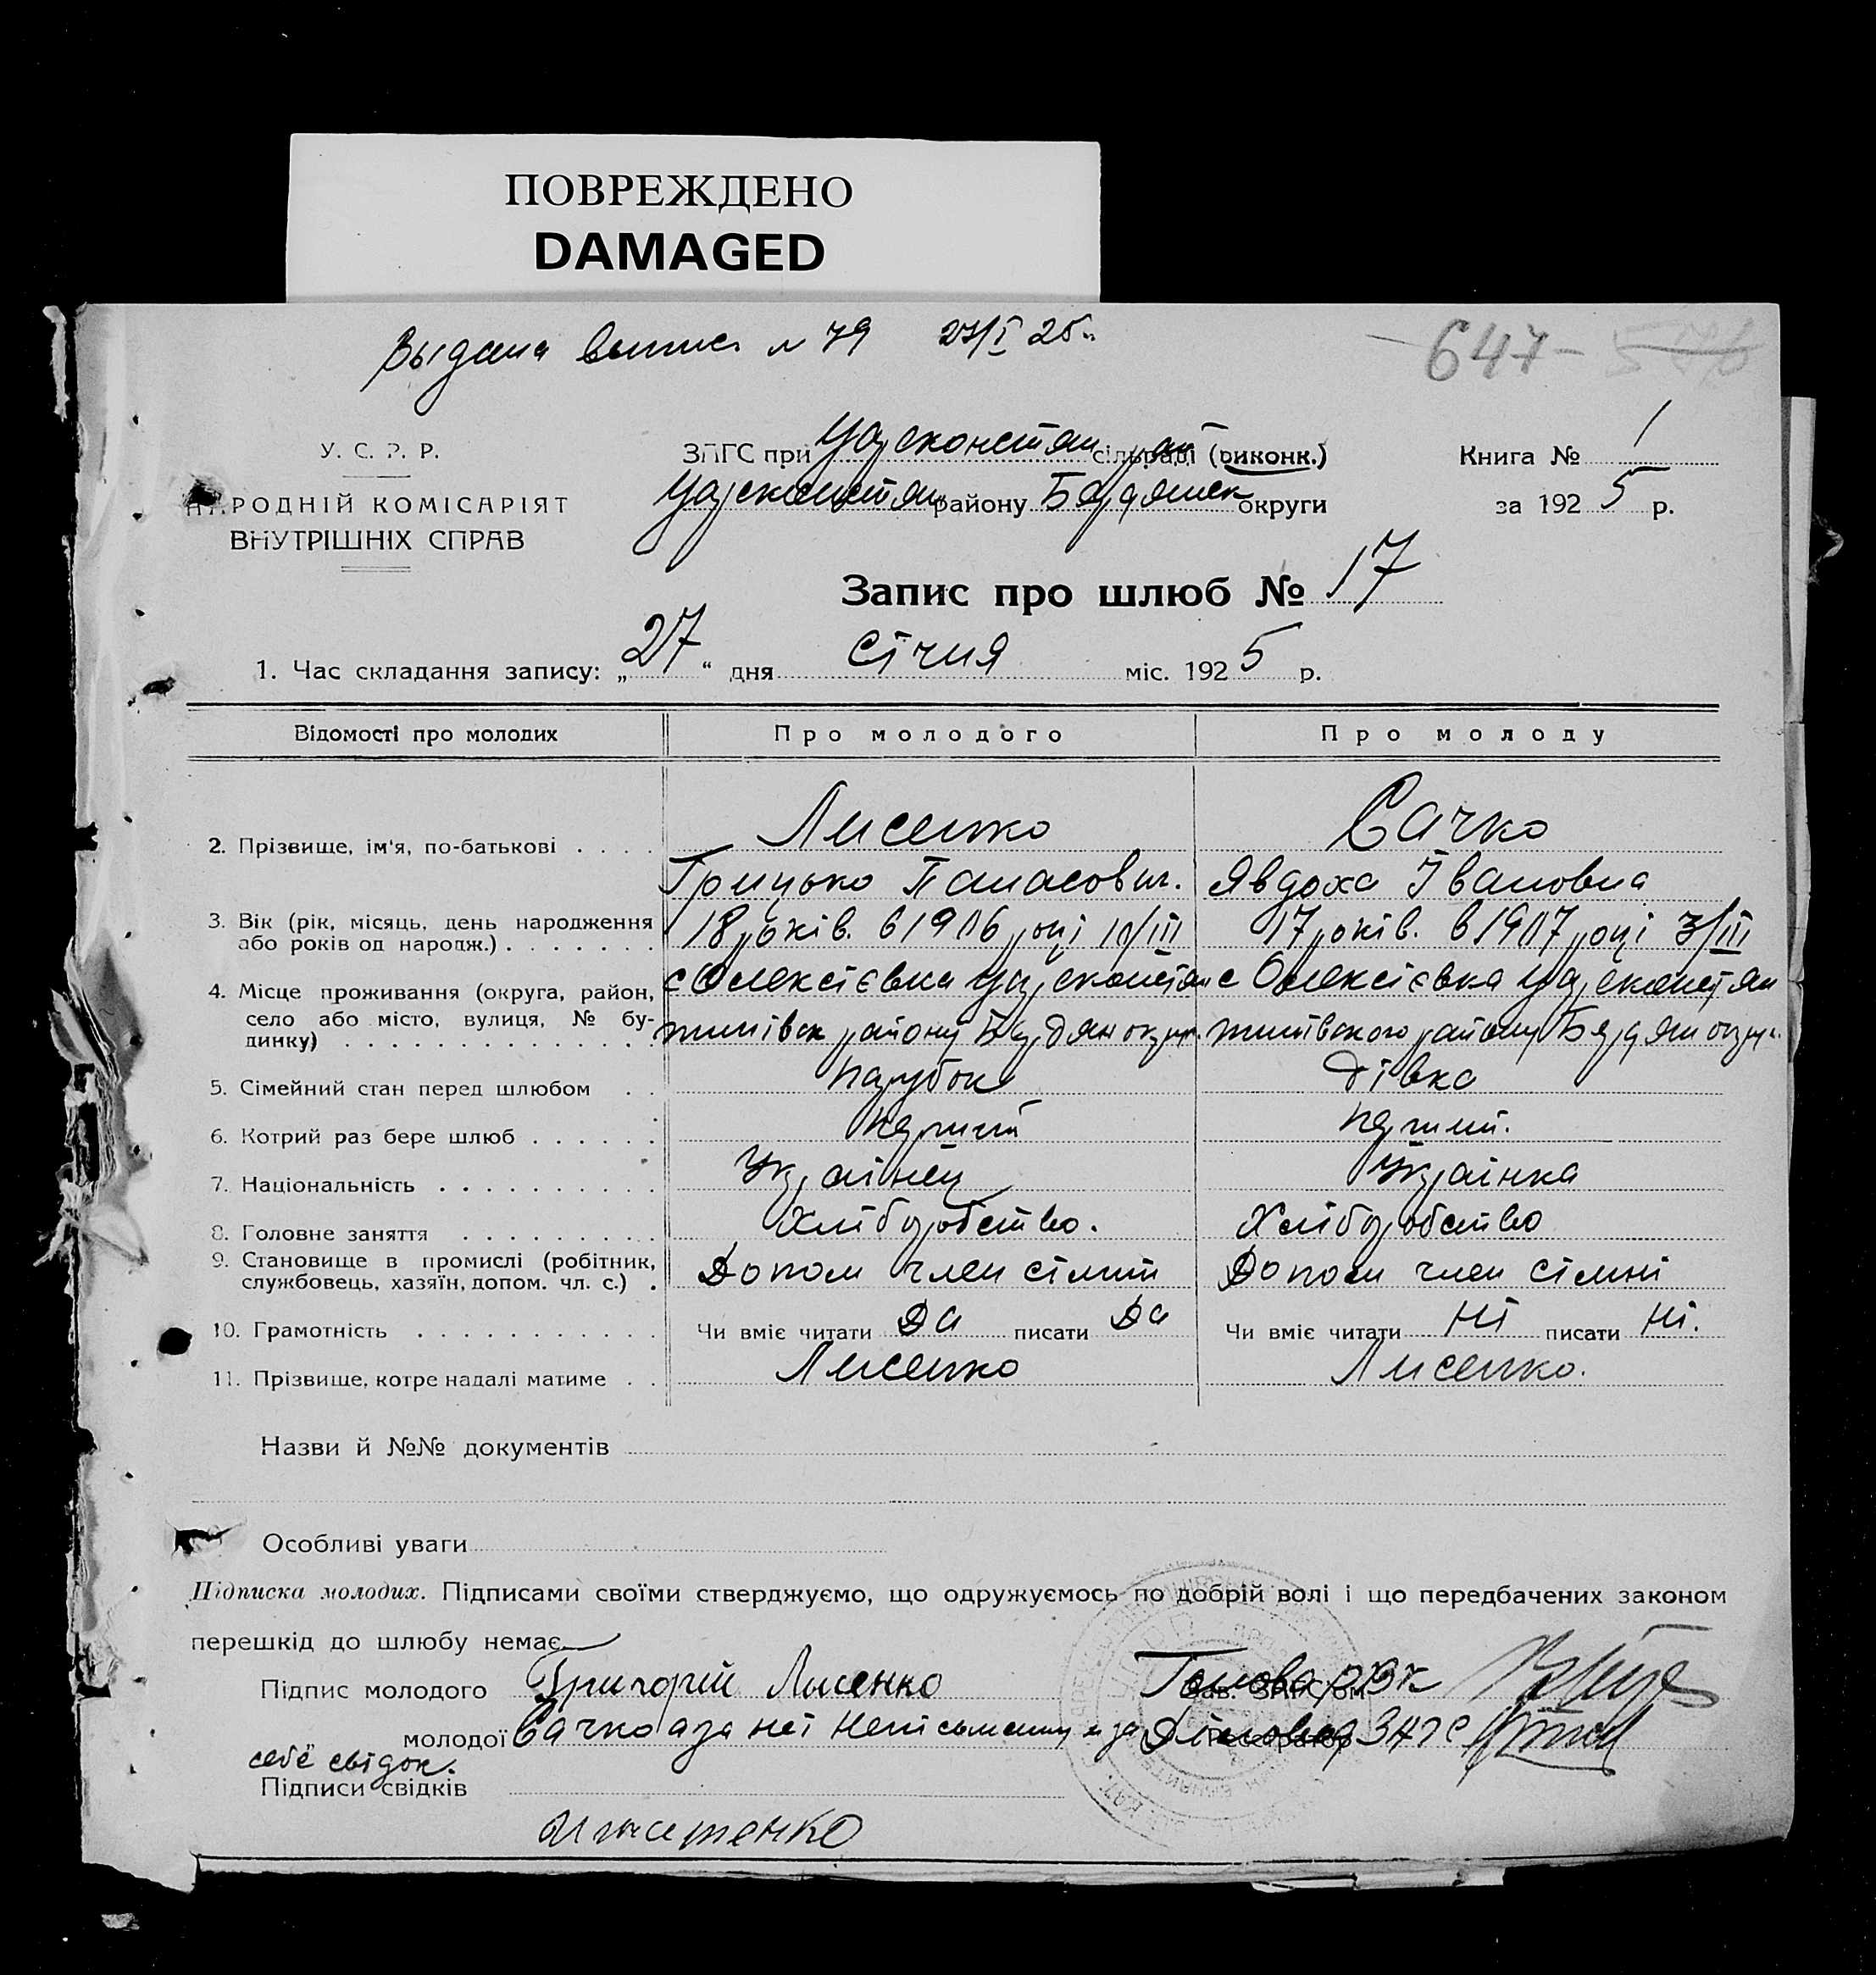 ПОВРЕЖДЕНО
DAMAGED
Выдана выпис. № 79 27/I 25 г.
647
У. С. Р. Р.
НАРОДНІЙ КОМІСАРІЯТ
ВНУТРІШНІХ СПРАВ
ЗАГС при Цареконстян рай сільраді (виконк.)
Цареконстян району Бердянськ округи
Книга № 1
за 1925 р.
Запис про шлюб № 17
1. Час складання запису: „27“ дня січня міс. 1925 р.
Відомості про молодих Про молодого Про молоду
2. Прізвище, ім'я, по-батькові Лисенко Сачко
Грицько Панасович. Явдоха Івановна
3. Вік (рік, місяць, день народження або років од народж.) 18 років. в 1906 році 10/III 17 років. в 1907 році 3/III
4. Місце проживання (округа, район, село або місто, вулиця, № будинку) с Олексієвка Царсконстян с Олексієвка Царсконстян
тинівск району Бердян округ. тинівского району Бердян округ.
5. Сімейний стан перед шлюбом парубок дівка
6. Котрий раз бере шлюб перший перший.
7. Національність Украінец Украінка
8. Головне заняття Хліборобство. Хліборобство
9. Становище в промислі (робітник, службовець, хазяїн, допом. чл. с.) Допом член сімьи Допом член сімьі
10. Грамотність Чи вміє читати Да писати Да Чи вміє читати Ні писати Ні.
11. Прізвище, котре надалі матиме Лисенко Лисенко.
Назви й №№ документів
Особливі уваги
Підписка молодих. Підписами своїми стверджуємо, що одружуємось по добрій волі і що передбачених законом
перешкід до шлюбу немає.
Підпис молодого Григорій Лисенко Голова РВК
молодої Сачко а за неі неписьменну и за Діловод ЗАГС
себе свідок.
Підписи свідків